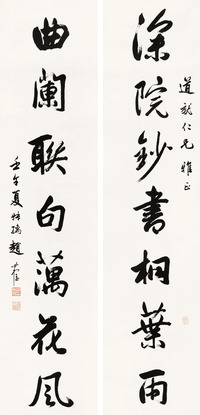 道仁兄雅正
深院鈔書桐葉雨
曲闌聯句藕花風
壬午夏趙